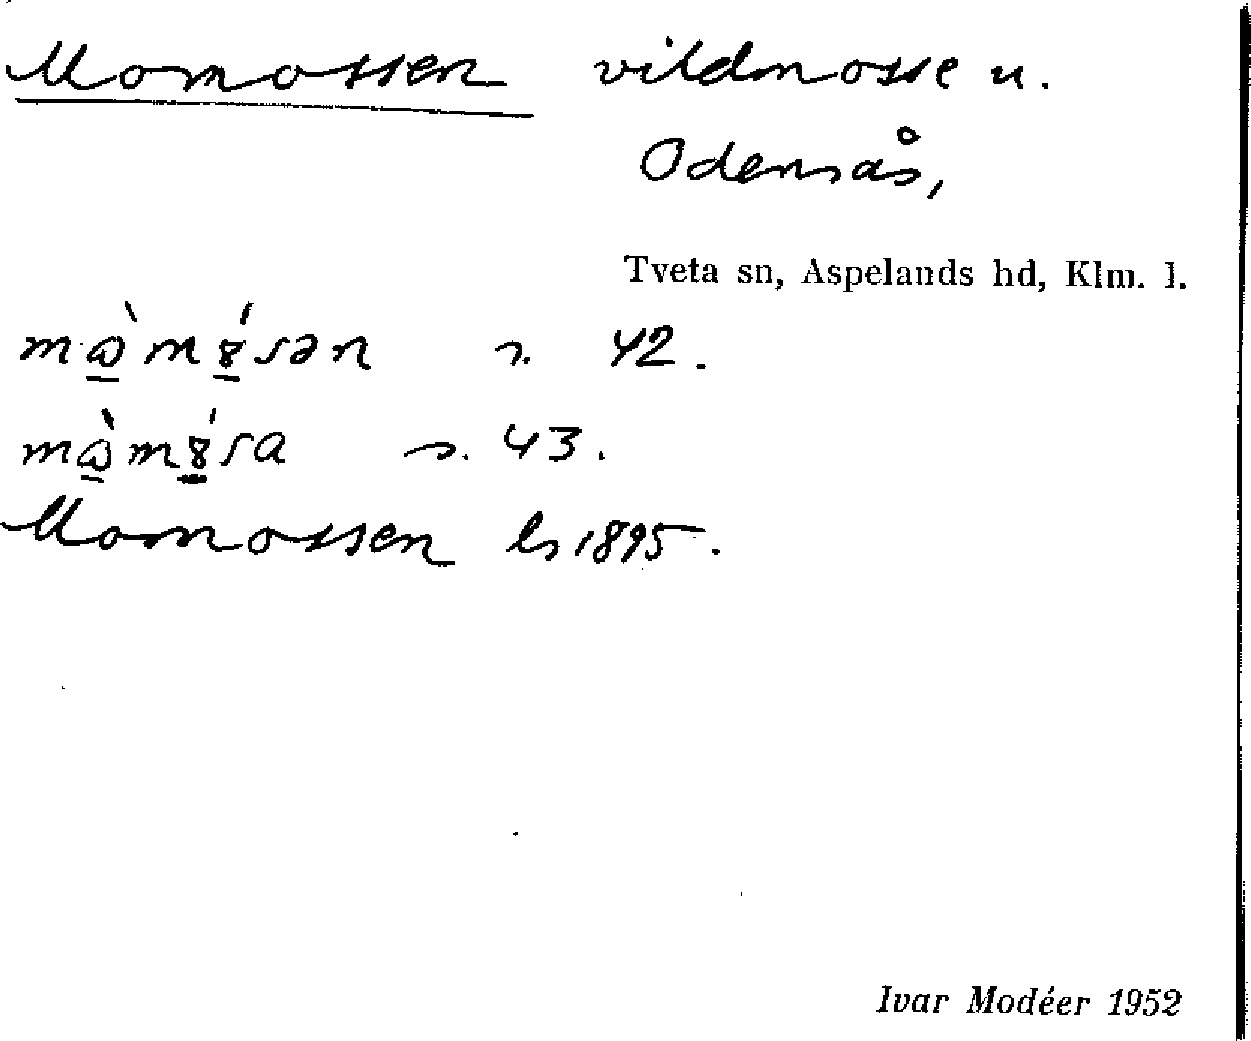 Momossen vildmosse u.
Odensås,
Tveta sn, Aspelands hd, Klm. l.
mɷ̀m8́sən s. 42.
mɷ̀m8́sa s. 43.
Momossen ls 1895.
Ivar Modéer 1952